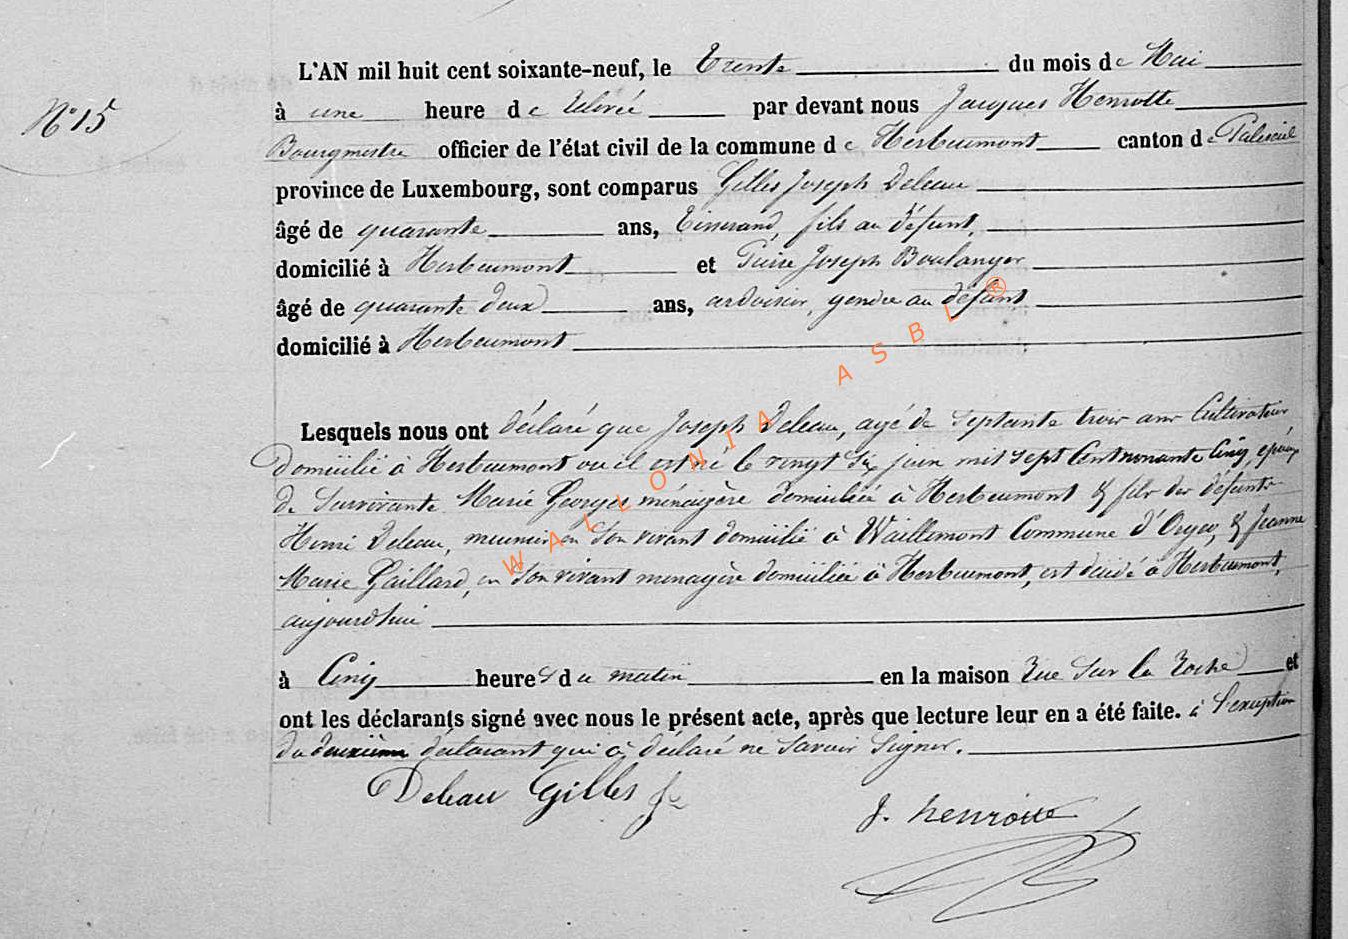 N° 15
L'AN mil huit cent soixante-neuf, le Trente du mois de Mai
à une heure de relevée par devant nous Jacques Henrotte
Bourgmestre officier de l'état civil de la commune de Herbeumont canton de Paliseul
province de Luxembourg, sont comparus Gilles Joseph Deleau
âgé de quarante ans, Tisserand, fils au défunt,
domicilié à Herbeumont et Pierre Joseph Boulanger
âgé de quarante deux ans, ardoisier, gendre au défunt
domicilié à Herbeumont
Lesquels nous ont déclaré que Joseph Deleau, agé de septante trois ans Cultivateur
Domicilié à Herbeumont ou il est né le vingt six juin mil sept Cent nonante Cinq, époux
de Survivante Marie Georges ménagère domiciliée à Herbeumont & fils des défunts
Henri Deleau, meunier en son vivant domicilié à Waillimont Commune d'Orgeo, & Jeanne
Marie Gaillard, en son vivant menagère domiciliée à Herbeumont, est décidé à Herbeumont,
aujourd'hui
à Cinq heures du matin en la maison Rue Sur la Roche et
ont les déclarants signé avec nous le présent acte, après que lecture leur en a été faite. à l'exception
du deuxième déclarant qui a déclaré ne savoir signer.
Deleau Gilles Jh
J. henrotte
WALLONIA ASBL ®